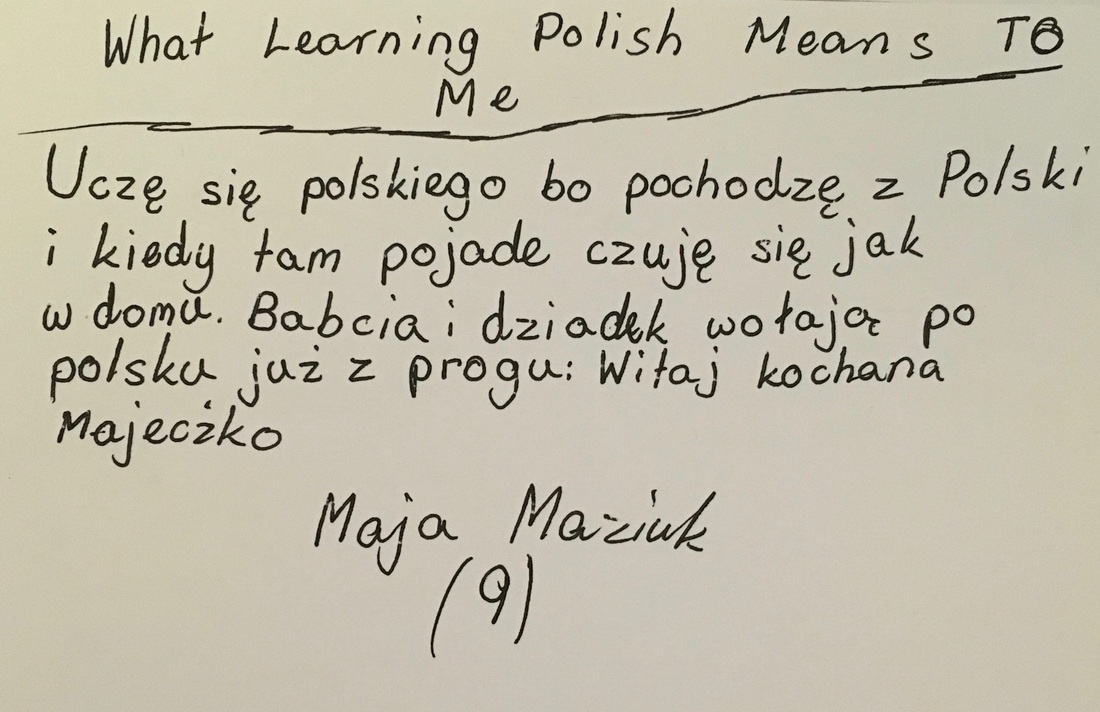 What Learning Polish Means To
Me
Uczę się polskiego bo pochodzę z Polski
i kiedy tam pojade czuję się jak
w domu. Babcia i dziadek wołają po
polsku już z progu: Witaj kochana
Majeczko
Maja Maziuk
(9)